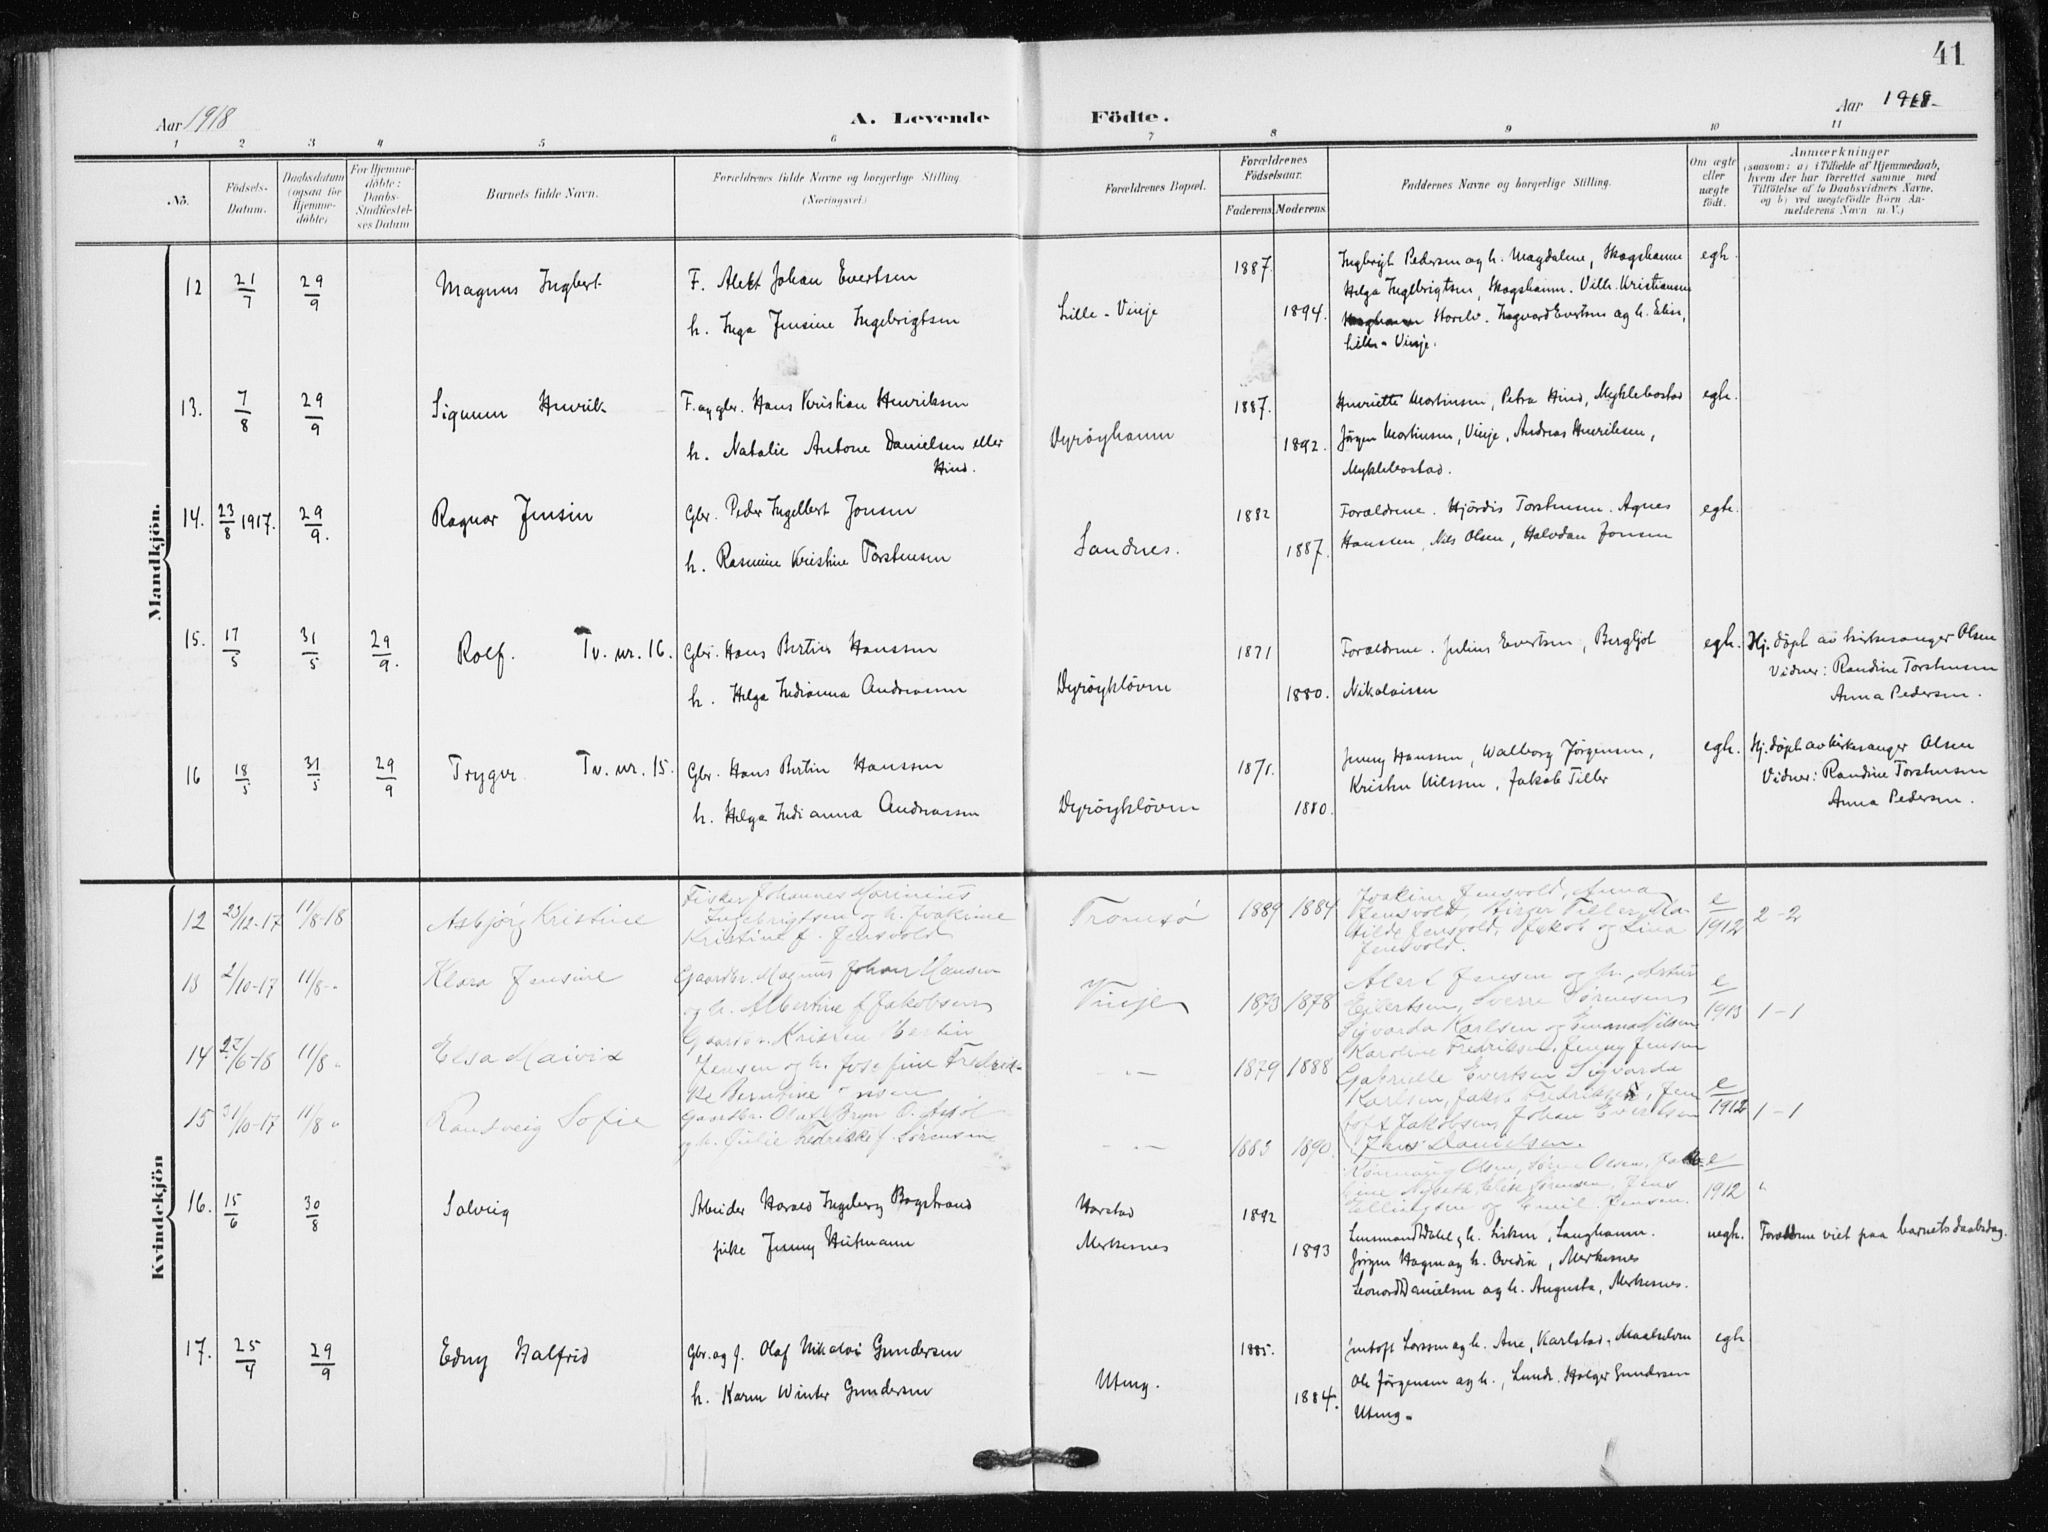 41
Aar 1918
A. Levende Födte.
Aar 1918
1 2 3 4 5 6 7 8 9 10 11
No.
Födsels-
Datum.
Daabsdatum
(ogsaa for
Hjemme-
döbte)
For Hjemme-
döbte:
Daabs-
Stadfæstel-
ses Datum
Barnets fulde Navn.
Forældrenes fulde Navne og borgerlige Stilling.
(Næringsvei.)
Forældrenes Bopæl.
Forældrenes
Födselsaar.
Faderens. Moderens.
Faddernes Navne og borgerlige Stilling.
Om ægte
eller
uægte
födt.
Anmærkninger
(saasom: a) i Tilfælde af Hjemmedaab,
hvem der har forrettet samme med
Tilföielse af to Daabsvidners Navne,
og b) ved uægtefödte Börn An-
melderens Navn m. V.)
Mandkjön.
12 21/7 29/9 Magnus Ingbert
F. Alekt Johan Evertsen
h. Inga Jensine Ingebrigtsen
Lille-Vinje
1887.
1894.
Ingbrigt Pedersen og h. Magdalene, Skogshamn
Helga Ingebrigtsen, Skogshamn. Vilh. Kristiansen
Ingvard Evertsen og h. Elen,
Lille-Vinje.
egh.
13. 7/8 29/9 Sigmun Henrik
F. og gbr. Hans Kristian Henriksen
h. Natalie Antone Danielsen eller
Hind.
Dyrøyhamn
1887.
1892.
Henriette Mortinsen, Petra Hind, Myklebostad
Jørgen Mortinsen, Vinje, Andreas Henriksen,
Myklebostad.
egh.
14. 23/8 1917. 29/9. Ragnar Jensin
Gbr. Peder Ingelbert Jonsen
h. Rasmine Kristine Torstensen
Sandnes.
1882
1887.
Forældrene. Hjördis Torstensen. Agnes
Hanssen, Nils Olsen, Halvdan Jonsen
egh.
15. 17/5 31/5 29/9. Rolf. Tv. nr. 16.
Gbr. Hans Bertin Hanssen
h. Helga Indianna Andreassen
Dyrøykløven
1871
1880.
Forældrene. Julius Evertsen, Bergljot
Nikolaisen
egh.
Hj. døpt av kirkesanger Olsen
Vidner: Randine Torstensen
Anna Pedersen.
16 18/5 31/5 29/9 Trygve Tv. nr. 15.
Gbr. Hans Bertin Hanssen
h. Helga Indianna Andreassen
Dyrøykløven
1871.
1880.
Jenny Hanssen, Walborg Jørgensen,
Kristen Nilssen, Jakob Tiller
egh.
Hj. døpt av kirkesanger Olsen
Vidner: Randine Torstensen
Anna Pedersen.
Kvindekjön
12 23/12-17 11/8-18 Asbjørg Kristine
Fisker Johannes Marinius
Ingebrigtsen og h. Joakime
Kristine f. Jensvold
Tromsø
1889 1884
Joakim Jensvold, Anna
Jensvold, Birger Tiller, Ma-
tilde Jensvold, Jakob og Lina
Jensvold.
e/1912 2-2
13 2/10-17 11/8-" Klara Jensine
Gaardbr. Magnus Johan Hansen
og h. Albertine f. Jakobsen
Vinje
1873 1878
Albert Jensen og h., Artur
Eilertsen, Sverre Sørensen,
Sigvarda Karlsen og Emma Nilsen
e/1913 1-1
14 22/6-18 11/8 " Elsa Maivix
Gaardbr. Kristen Bertin
Jensen og h. Josefine Fredrik-
ke Berntine
- " -
1879 1888
Karoline Fredriksen, Jenny Jensen
Gabrielle Evertsen Sigvarda
Karlsen, Jakob Fredriksen, Jen
toft Jakobsen, Johan Evertsen
Jens Danielsen.
e/1912 1-1
15 31/10-17 11/8 " Ransveig Sofie
Gaardbr. Olaf
og h. Julie Fredrikke f. Sørensen
- " -
1883 1890
Rønnaug Olsen, Søren Olsen,
Elise Sørensen, Jens
Ellingsen og Emil Jensen.
e/1912 "
16. 15/6 30/8 Solveig
Arbeider Harald Ingeberg Bogstrand
pike Jenny Heitmann
Harstad
Merkesnes
1892
1893
Lensmand Dahl og h. Lisken, Langhamn.
Jørgen Hagen og h. Ovedia, Merkesnes
Leonard Danielsen og h. Augusta, Merkesnes.
uegh.
Forældrene viet paa barnets daabsdag.
17. 25/4 29/9 Edny Halfrid
Gbr. og f. Olaf Nikolai Gundersen
h. Karen Winter Gundersen
Uteng.
1885.
1884.
Jentoft Larssen og h. Ane, Karlstad, Maalselven
Ole Jørgensen og h., Lund. Holger Gundersen
Uteng.
egh